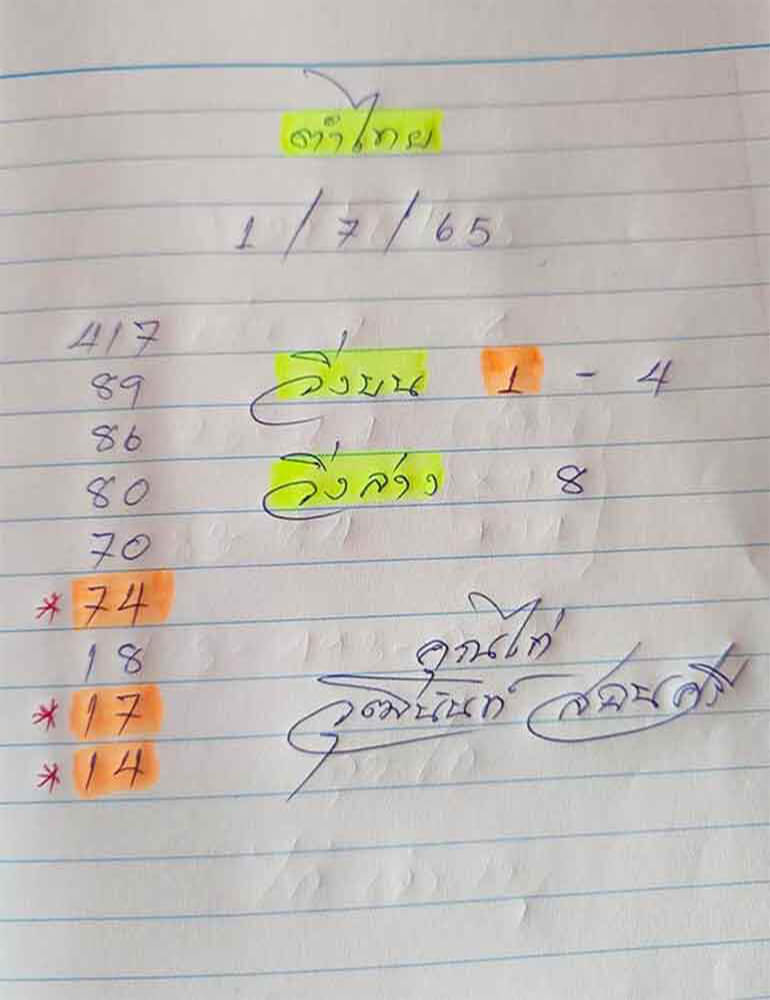 ทำไทย
1 / 7 / 65
417
89 วิ่งบน 1 - 4
86
80 วิ่งล่าง 8
70
* 74
18 คุณไก่
* 17 วุฒินันท์ สอนศรี
* 14